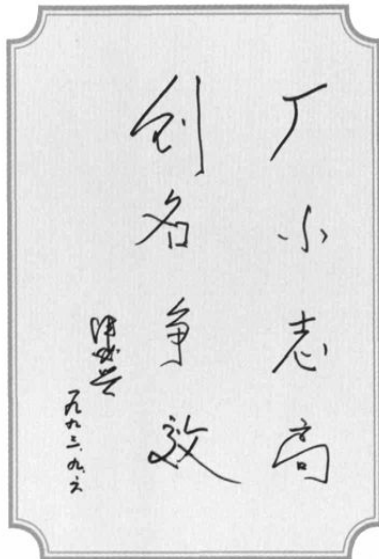 厂小志高
创名争效
一九九三.九.六